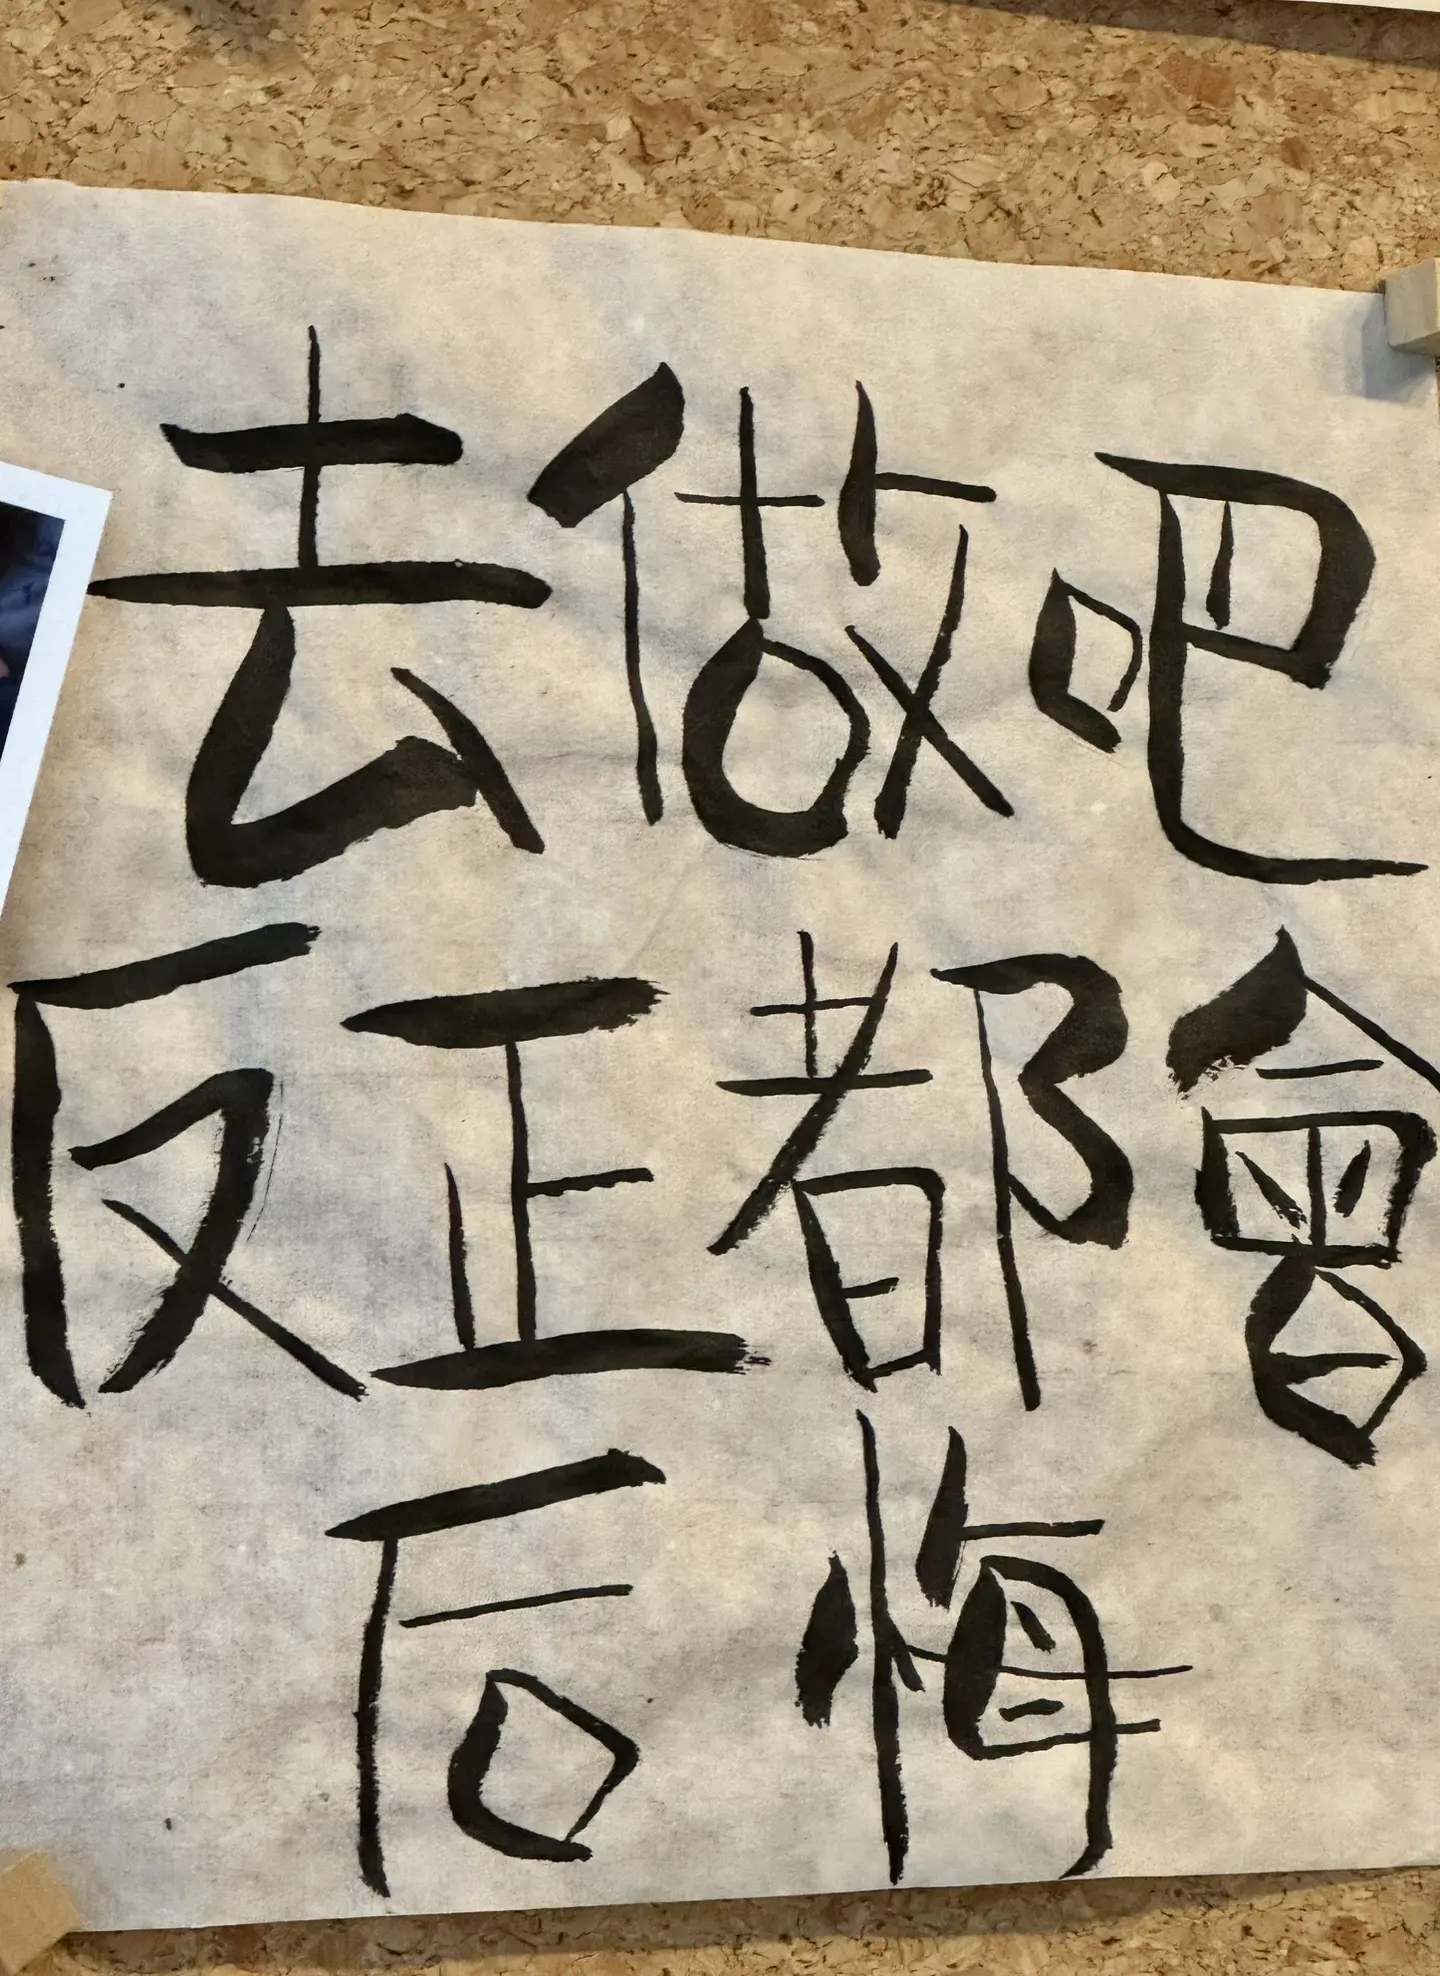 去做吧
反正都會
后悔